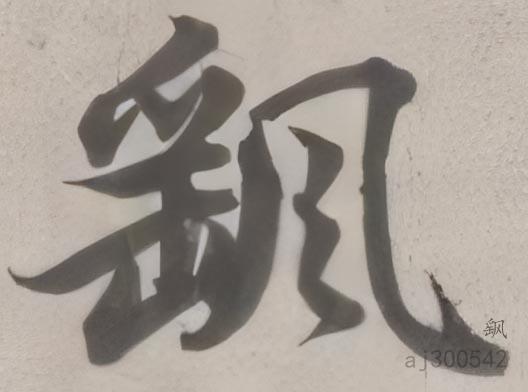 飖
飖
aj300542